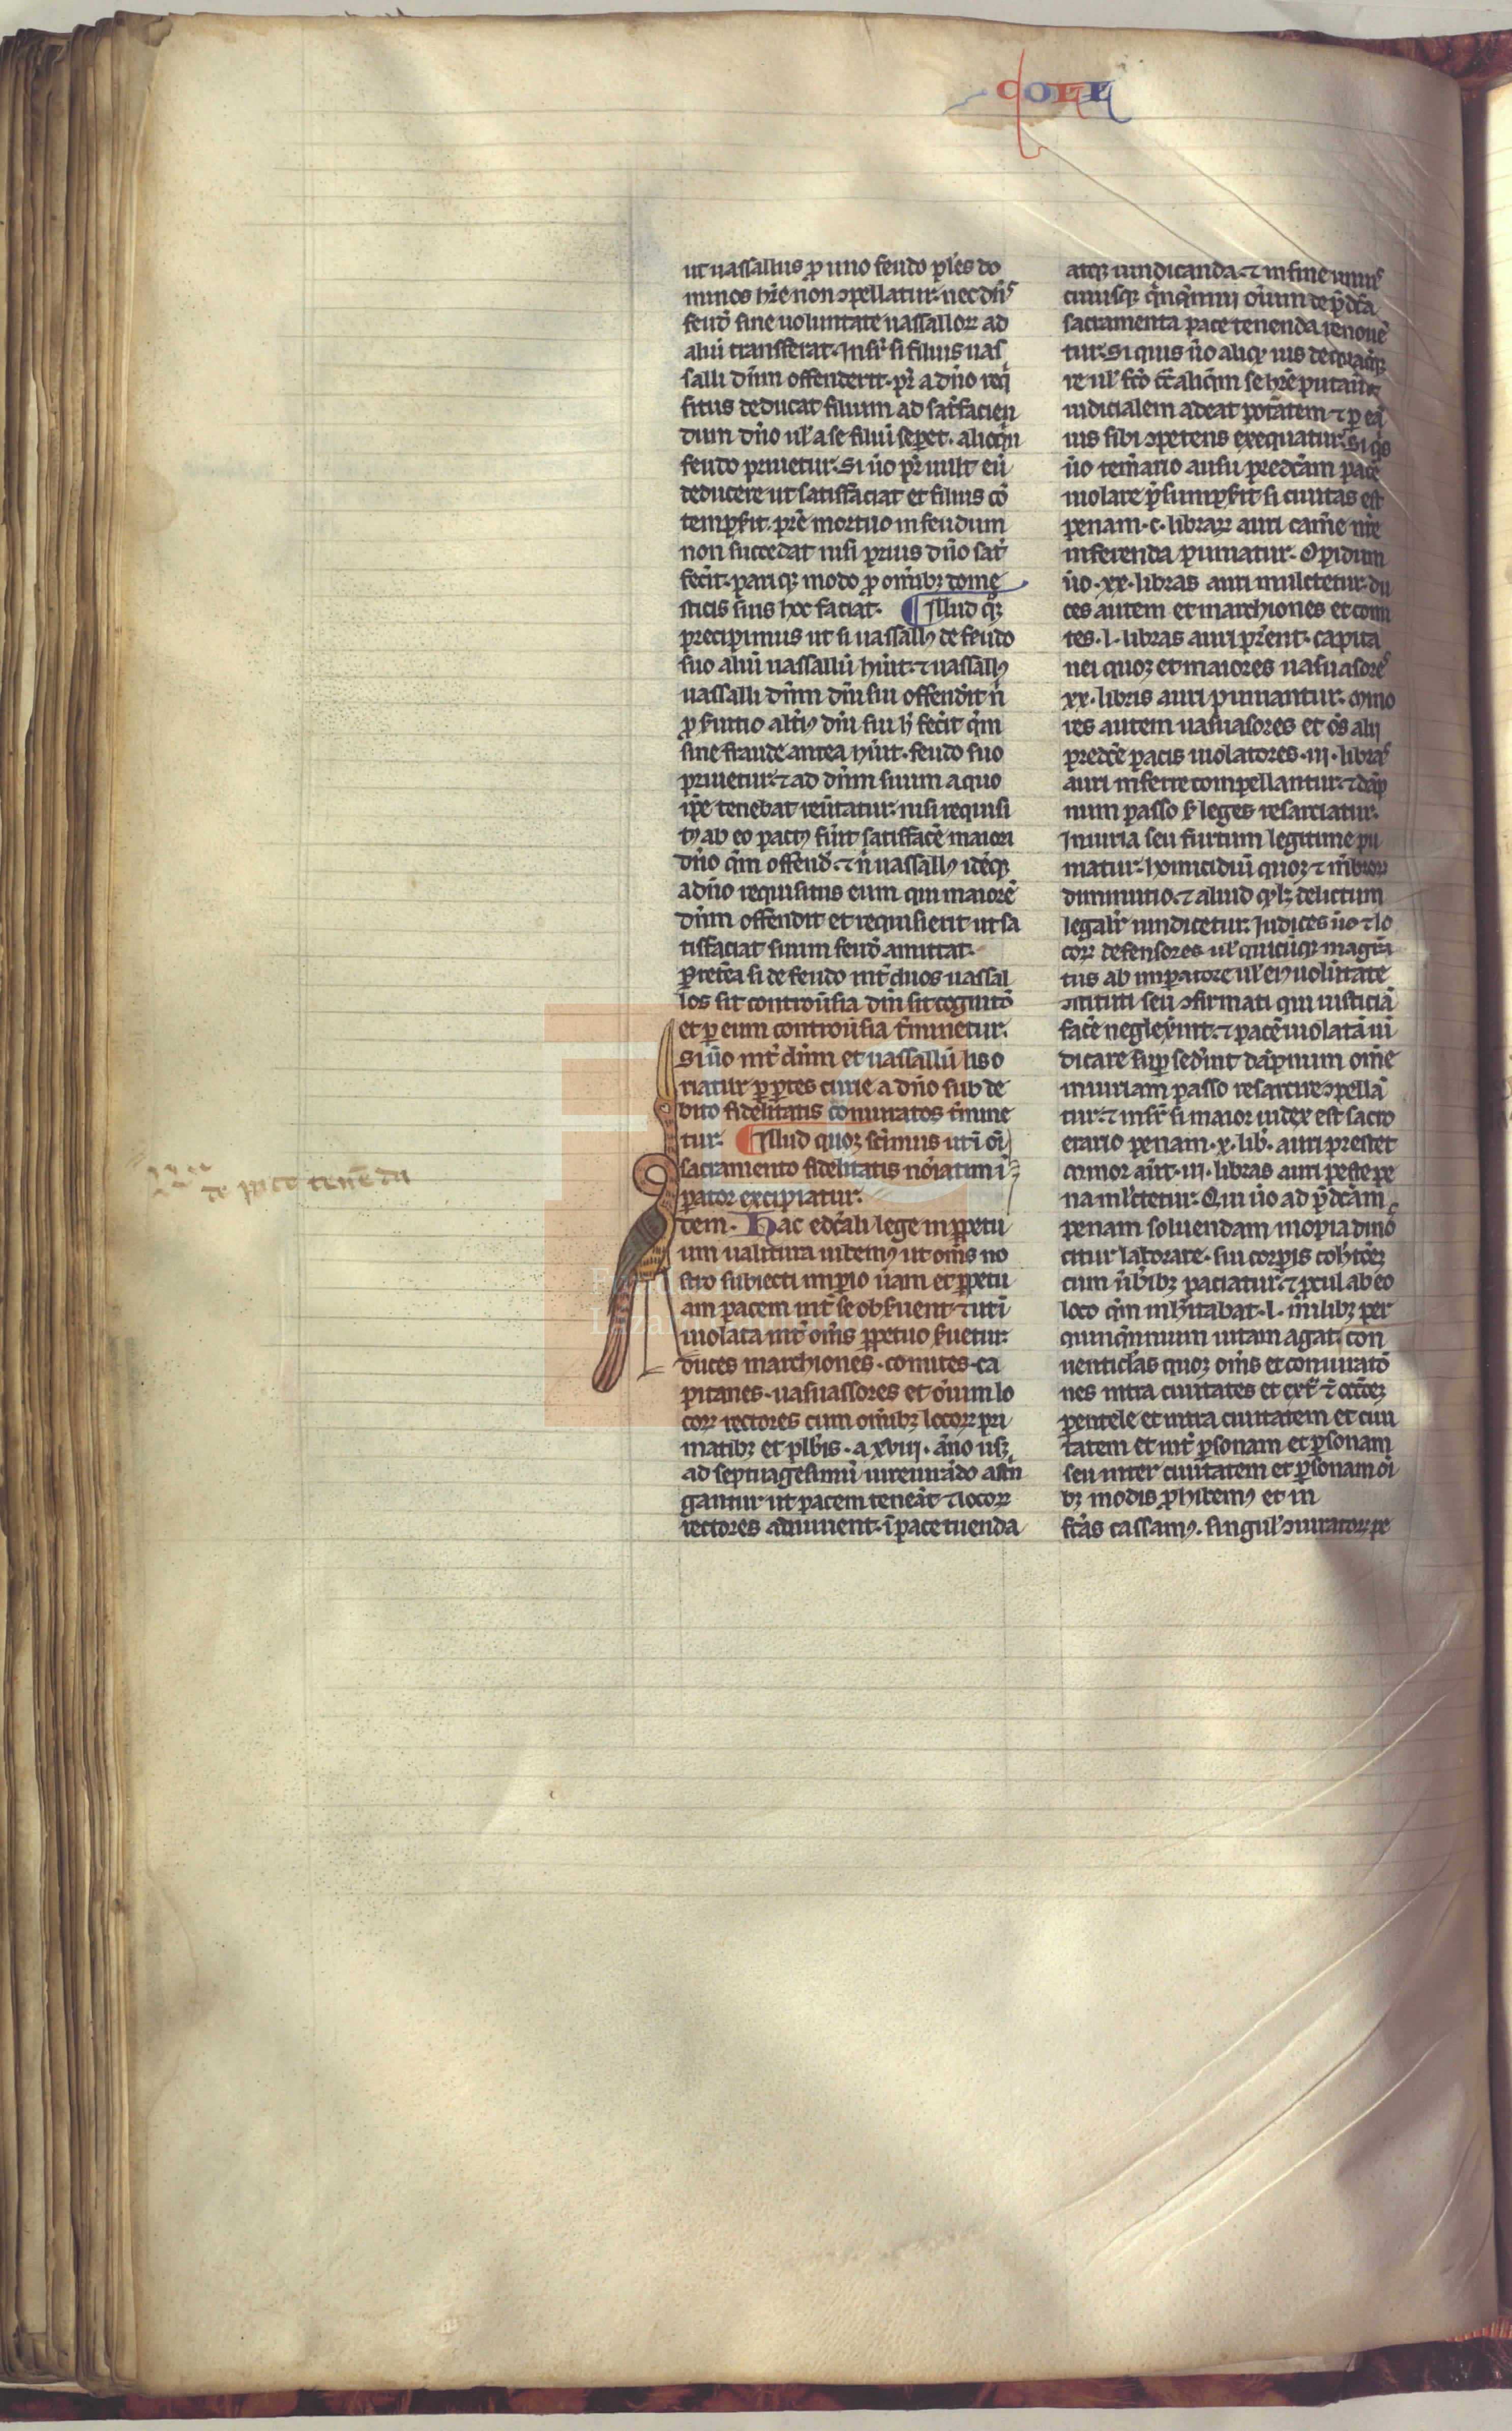 COLL
ut uassallus ꝓ uno feudo pl̃es do
minos hr̃e non ↄpellatur. nec dñs
feud̃ sine uoluntate uassalloꝝ ad
aliũ transferat. Insr̃ si filius uas
salli dñm offenderit. pr̃ a dño req̃
situs deducat filium ad sat̃facien
dum dño ul̃ a se filiũ seꝑet. alioq̃n
feudo priuetur. Si ũo pr̃ uult eũ
deducere ut satisfaciat et filius cõ
tempsit. pr̃e mortuo in feudum
non succedat nisi prius dño sat̃
fec̃it. pariqꝫ modo ꝓ om̃ibꝫ dome
sticis suis hoc faciat. ¶ Illud qꝫ
precipimus ut si uassallꝰ de feudo
suo aliũ uassallũ hũit. ⁊ uassallꝰ
uassalli dñm dñi sui offendit ñ
ꝓ seruitio alt̃iꝰ dñi sui qm̃
sine fraude antea hũit. feudo suo
priuetur. ⁊ ad dñm suum a quo
ip̃e tenebat reũtatur. nisi requisi
tꝰ ab eo fũit satisfac̃e maiori
dño qm̃ offend̃. ⁊ ñ uassallꝰ idẽqꝫ
a dño requisitus eum qui maiorẽ
dñm offendit et requisierit ut sa
tisfaciat suum feud̃ amittat.
P̃ret̃ea si de feudo int̃ duos uassal
los sit controũsia dñi sit cognitõ
et ꝑ eum controũsia t̃minetur.
Si ũo int̃ dñm et uassallũ lis o
riatur ꝑ p̃res curie a dño sub de
bito fidelitatis coniuratos t̃mine
tur. ¶ Illud quoqꝫ sc̃imus ut ĩ oĩ
sacramento fidelitatis noĩatim ĩ
ꝑator excipiatur.
dem. Hac edc̃ali lege in ꝑpetu
um ualitura iubemꝰ ut om̃s no
stro subiecti imꝑio ũam et ꝑpetu
am pacem int̃ se obs̃uent. ⁊ ut ĩ
uiolata int̃ om̃s ꝑpetuo s̃uetur.
duces marchiones. comites. ca
pitanes. uasuassores et oĩum lo
coꝝ rectores cum om̃ibꝫ locoꝝ pri
matibꝫ et plb̃is. a xviii. ãno usqꝫ
ad septuagesimũ iureiurãdo astri
gantur ut pacem teneãt ⁊ locoꝝ
rectores adiuuent. ĩ pace tuenda
de pace tenẽda
atqꝫ uindicanda. ⁊ in fine uniuS
cuiusqꝫ q̃nq̃nnii oĩum de p̃dc̃a
sacramenta pace tenenda renouẽ
tur. Si quis ũo aliqꝫ ius de
re ul̃ fc̃o aliq̃m se hr̃e putaũit
iudicialem adeat potãtem ⁊ ꝑ eã
ius sibi ↄpetens exequatur. Si q̃s
ũo tem̃ario ausu predc̃am pacẽ
uiolare p̃sumpsit si ciuitas est
penam. c. libraꝝ auri cam̃e nr̃e
inferenda puniatur. Opidum
ũo. xx. libras auri mulctetur. du
ces autem et marchiones et comi
tes. l. libras auri p̃rent. capita
nei quoqꝫ et maiores uasuasores
xx. libris auri puniantur. mino
res autem uasuasores et om̃s alii
predc̃e pacis uiolatores. iii. libras
auri inferre compellantur. ⁊ dãp
num passo s̃ leges resarciatur.
Iniuria seu furtum legitime pu
niatur. homicidiũ quoqꝫ ⁊ mb̃roꝝ
diminutio. ⁊ aliud qꝫlꝫ delictum
legalit̃ uindicetur. Iudices ũo ⁊ lo
coꝝ defensores ul̃ quicũqꝫ magr̃a
tus ab imꝑatore ul̃ eiꝰ uolũtate
ↄstituti seu ↄfirmati qui iusticiã
fac̃e neglex̃int. ⁊ pacẽ uiolatã uĩ
dicare suꝑsed̃int dãpnum om̃e
iniuriam passo resarcire ↄpellã
tur. ⁊ insr̃ si maior iudex est sacro
erario penam. x. lib̃. auri prestet
minor aũt. iii. libras auri pe
na ml̃ctetur. Qui ũo ad p̃dc̃am
penam soluendam inopia dinõ
citur laborare. sui corꝑis cohẽtõẽꝫ
cum ũb̃ibꝫ paciatur. ⁊ pcul ab eo
loco qm̃ inhĩtabat. l. mĩlibꝫ per
quinq̃nnium uitam agat. con
uenticl̃as quoqꝫ om̃s et coniuratõ
nes intra ciuitates et ext̃
pentele et intra ciuitatem et ciui
tatem et int̃ ꝑsonam et ꝑsonam
seu inter ciuitatem et ꝑsonam oĩ
bꝫ modis ꝓhibemꝰ et in
fc̃as cassamꝰ. singul̃ ↄiuratoꝝ pe